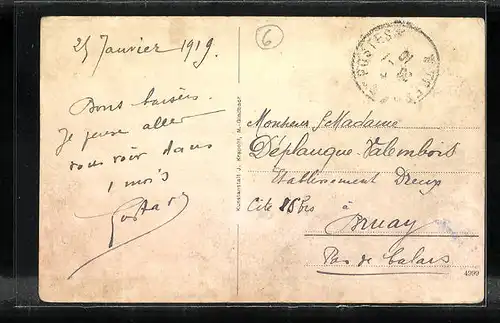 25 Janvier 1919.
Bons baisers.
Je pense aller
vous voir dans
1 mois
Gustave
6
Kunstanstalt J. Krapohl, M.-Gladbach
POSTES
Monsieur & Madame
Déplanque-Valembois
Etablissement
Cité 15 bis
à Bruay
Pas de Calais
4999